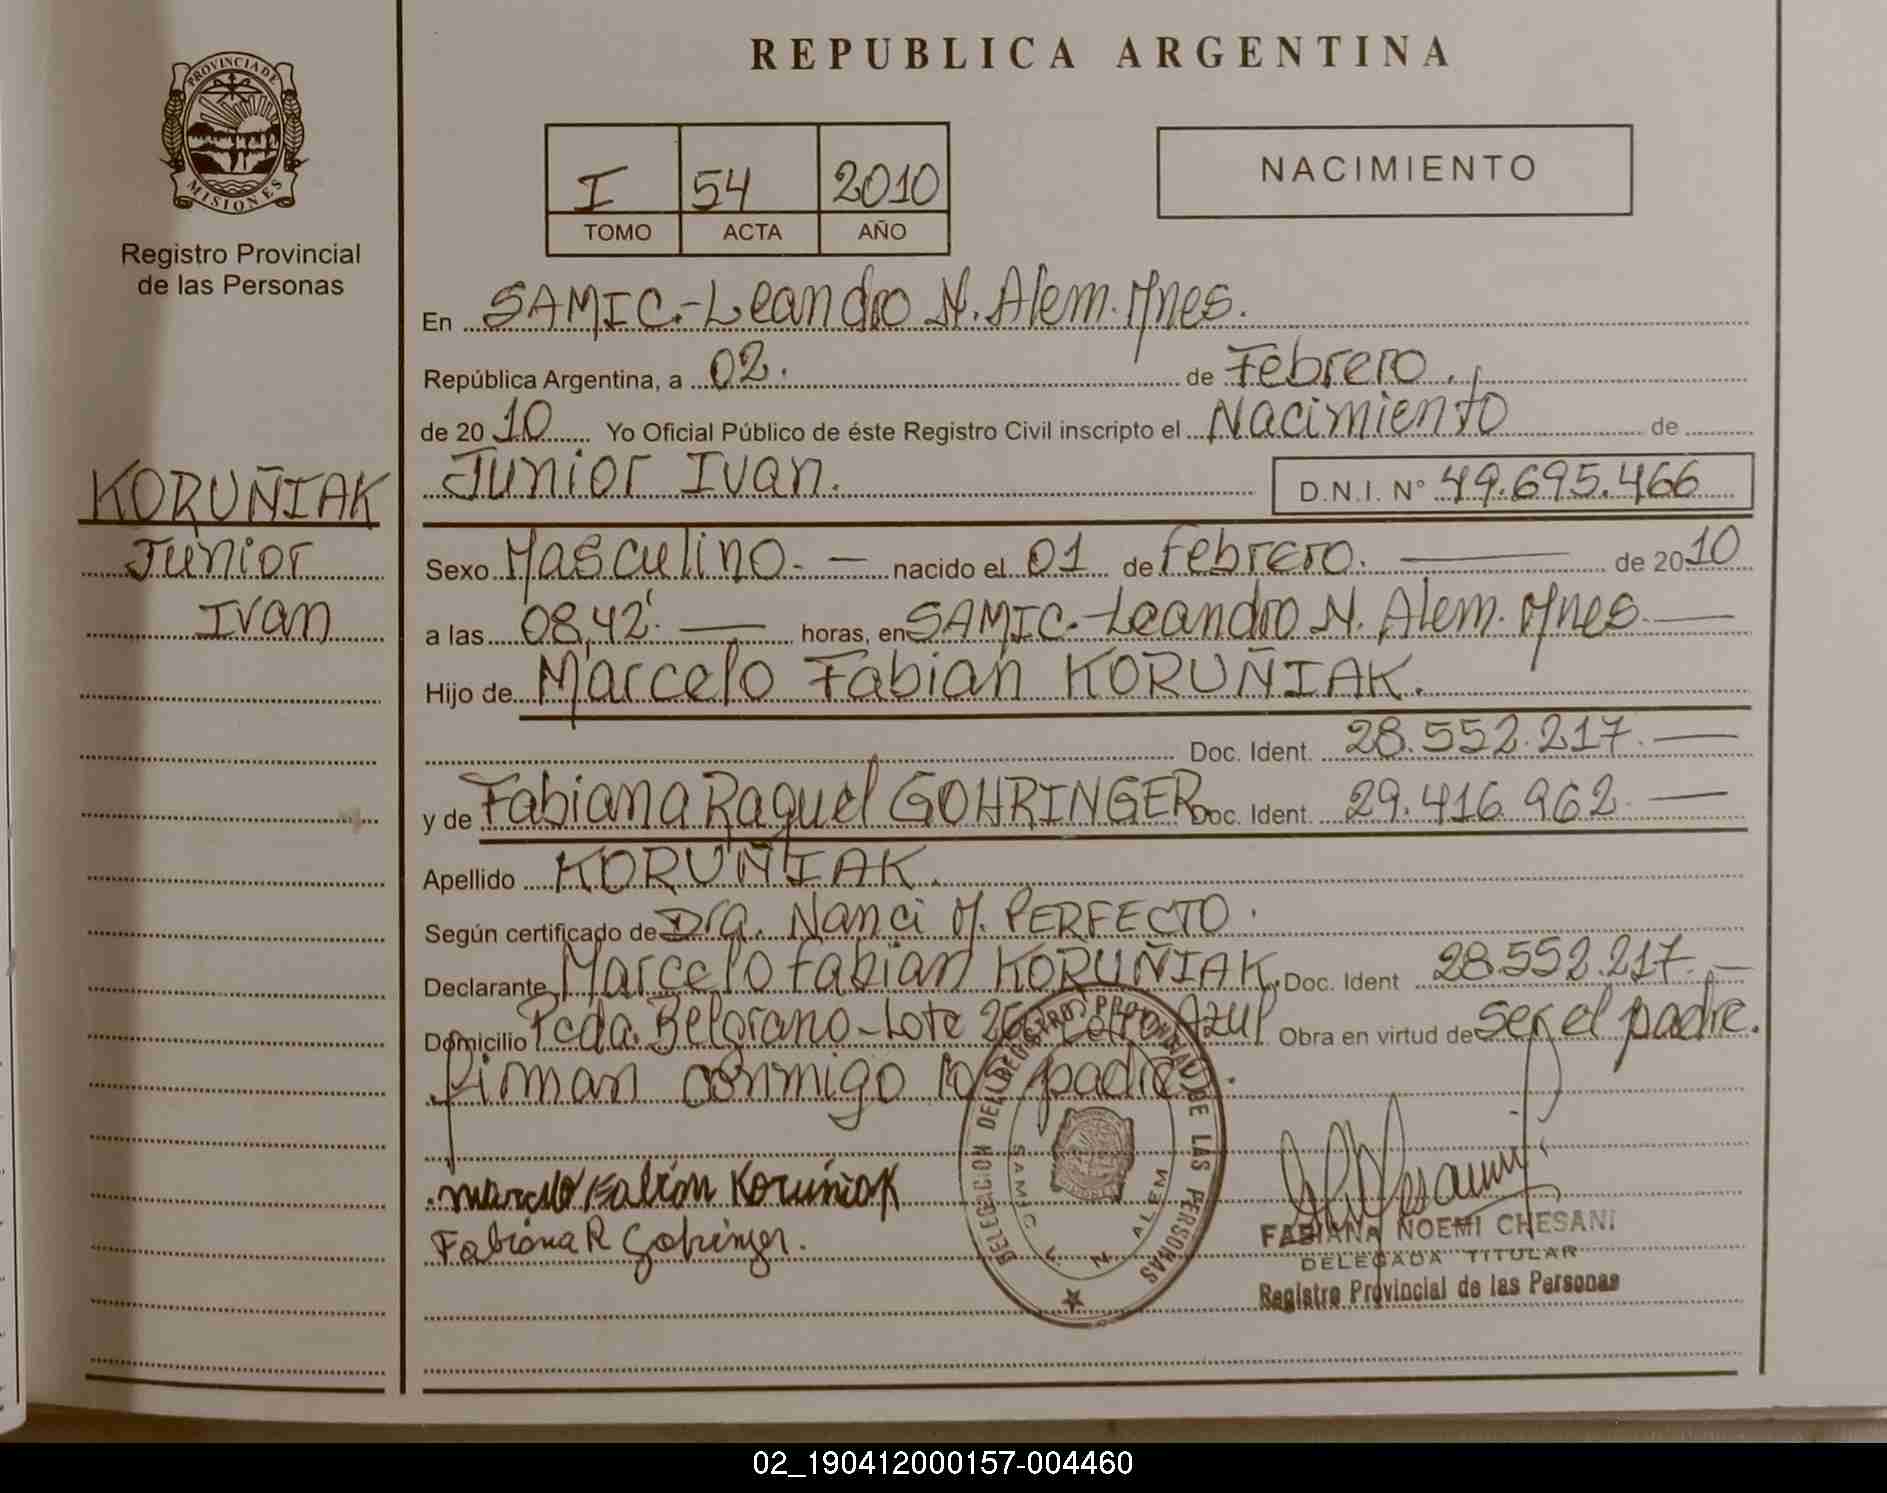 REPUBLICA ARGENTINA
PROVINCIA DE
MISIONES
Registro Provincial
de las Personas
I 54 2010
TOMO ACTA AÑO
NACIMIENTO
En SAMIC.-Leandro N. Alem. Mnes.
República Argentina, a 02. de Febrero.
de 2010 Yo Oficial Público de éste Registro Civil inscripto el Nacimiento de
Junior Ivan. D.N.I. N° 49.695.466
KORUÑIAK
Junior
Ivan
Sexo Masculino. — nacido el 01 de Febrero. — de 2010
a las 08,42'. — horas, en SAMIC.-Leandro N. Alem. Mnes. —
Hijo de Marcelo Fabian KORUÑIAK.
Doc. Ident. 28.552.217. —
y de Fabiana Raquel GOHRINGER Doc. Ident. 29.416.962. —
Apellido KORUÑIAK.
Según certificado de Dra. Nanci M. PERFECTO.
Declarante Marcelo Fabian KORUÑIAK. Doc. Ident 28.552.217. —
Domicilio Pcda. Belgrano-Lote Azul Obra en virtud de ser el padre.
firman conmigo padre
Marcelo Fabián Koruñiak
Fabiana R Gohringer.
DELEGACION DEL REGISTRO PROVINCIAL DE LAS PERSONAS
SAMIC L. N. ALEM
FABIANA NOEMI CHESANI
DELEGADA TITULAR
Registro Provincial de las Personas
02_190412000157-004460